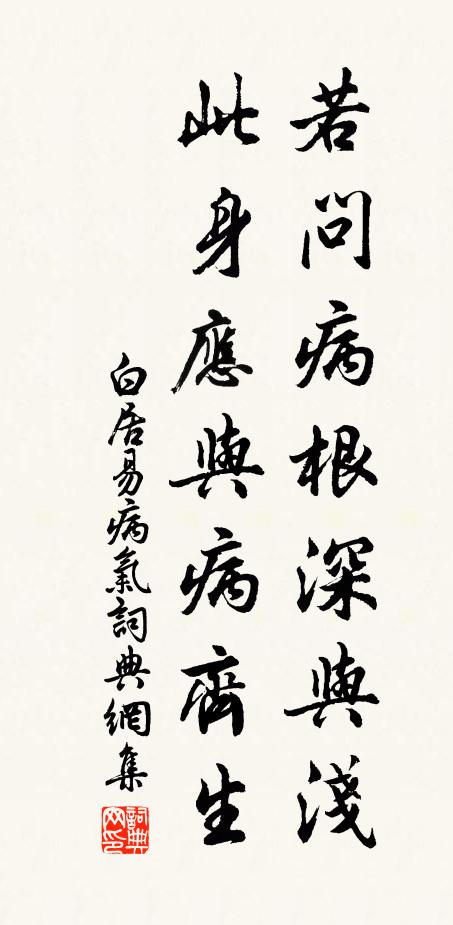 若問病根深與淺
此身應與病齊生
白居易病氣詞典網集
詞典
网印